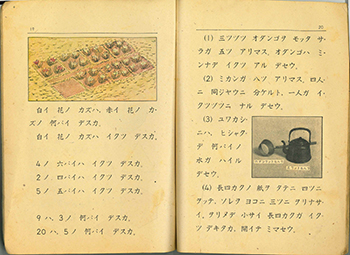 白イ 花ノ カズハ、赤イ 花ノ カ
ズノ 何バイ デスカ。
白イ 花ノ カズハ イクツ デスカ。
4ノ 六バイハ イクツ デスカ。
2ノ 四バイハ イクツ デスカ。
5ノ 五バイハ イクツ デスカ。
9ハ、3ノ 何バイ デスカ。
20ハ、5ノ 何バイ デスカ。
(1) 三ツヅツ オダンゴヲ モッタ サ
ラガ 五ツ アリマス。オダンゴハ ミ
ンナデ イクツ アル デセウ。
(2) ミカンガ 八ツ アリマス。四人
ニ 同ジヤウニ 分ケルト、一人ガ イ
クツヅツニ ナル デセウ。
(3) ユワカシ
ニハ、ヒシャク
デ 何バイノ
水ガ ハイル
デセウ。
(4) 長四カクノ 紙ヲ タテニ 四ツニ
ケッテ、ソレヲ ヨコニ 三ツニ クリナサ
イ。デキタ 小サイ 長四カクガ イク
ツ デキタカ、開イテ ミマセウ。